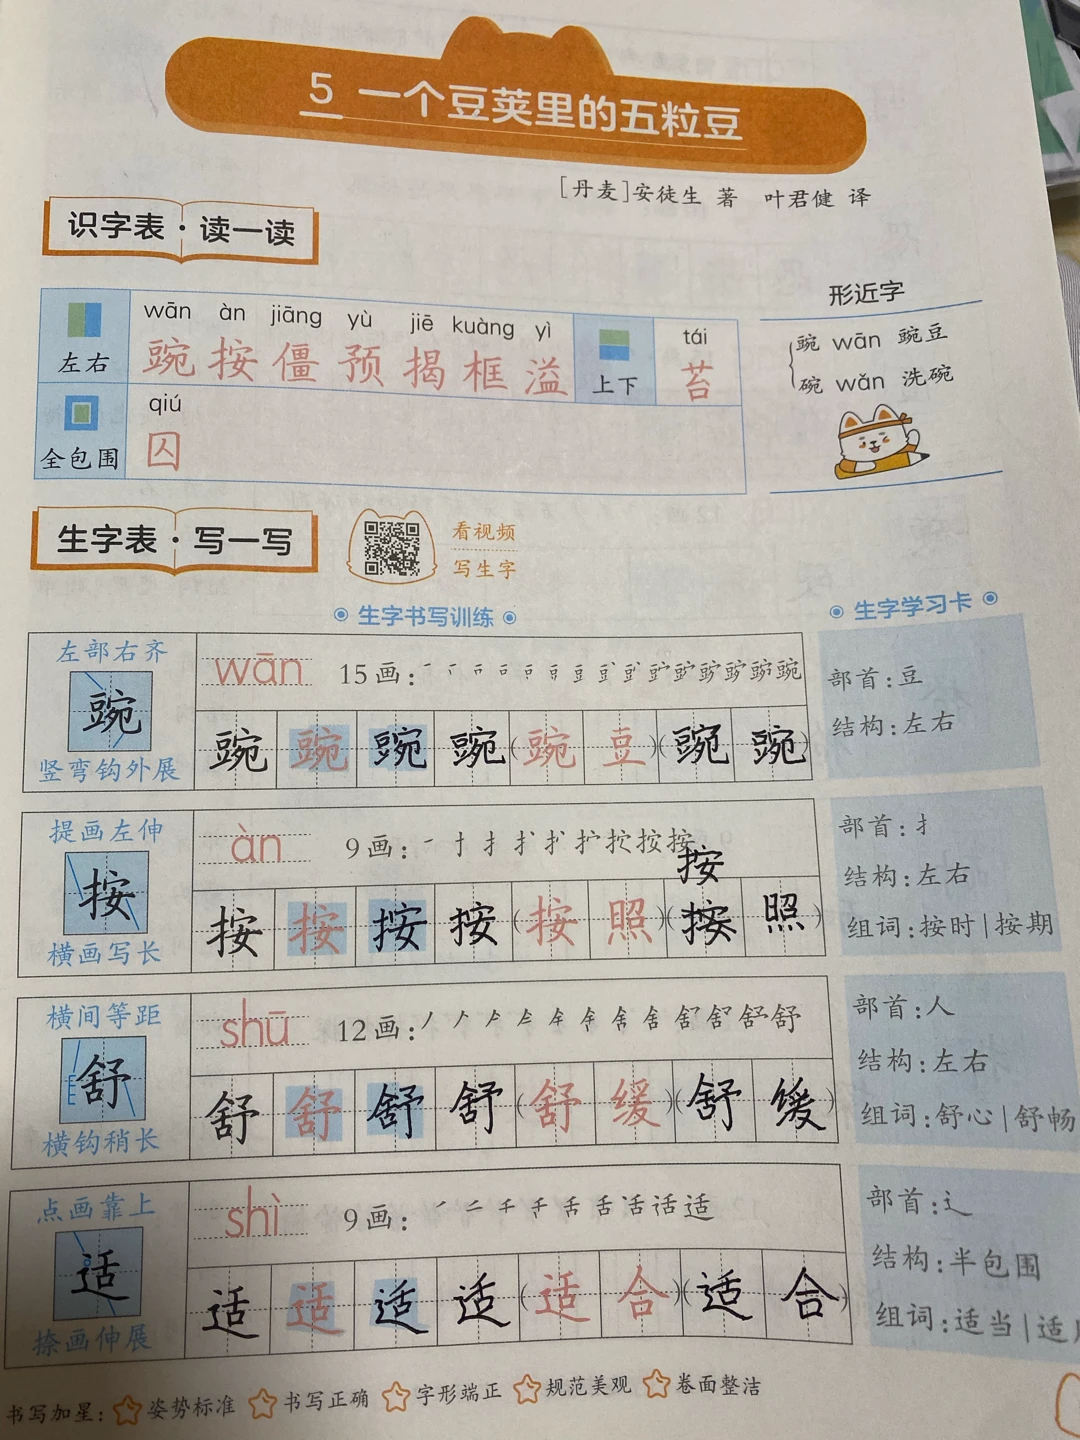 5 一个豆荚里的五粒豆
[丹麦]安徒生 著 叶君健 译
识字表·读一读
左右
wān àn jiāng yù jiē kuàng yì
豌 按 僵 预 揭 框 溢
上下
tái
苔
全包围
qiú
囚
形近字
豌 wān 豌豆
碗 wǎn 洗碗
生字表·写一写
看视频
写生字
生字书写训练
生字学习卡
左部右齐
豌
竖弯钩外展
wān 15画:
豌 豌 豌 豌 (豌 豆)(豌 豌)
部首:豆
结构:左右
提画左伸
按
横画写长
àn 9画:
按
按 按 按 按 (按 照)(按 照)
部首:扌
结构:左右
组词:按时|按期
横间等距
舒
横钩稍长
shū 12画:
舒 舒 舒 舒 (舒 缓)(舒 缓)
部首:人
结构:左右
组词:舒心|舒畅
点画靠上
适
捺画伸展
shì 9画:
适 适 适 适 (适 合)(适 合)
部首:辶
结构:半包围
组词:适当|适
书写加星: 姿势标准 书写正确 字形端正 规范美观 卷面整洁